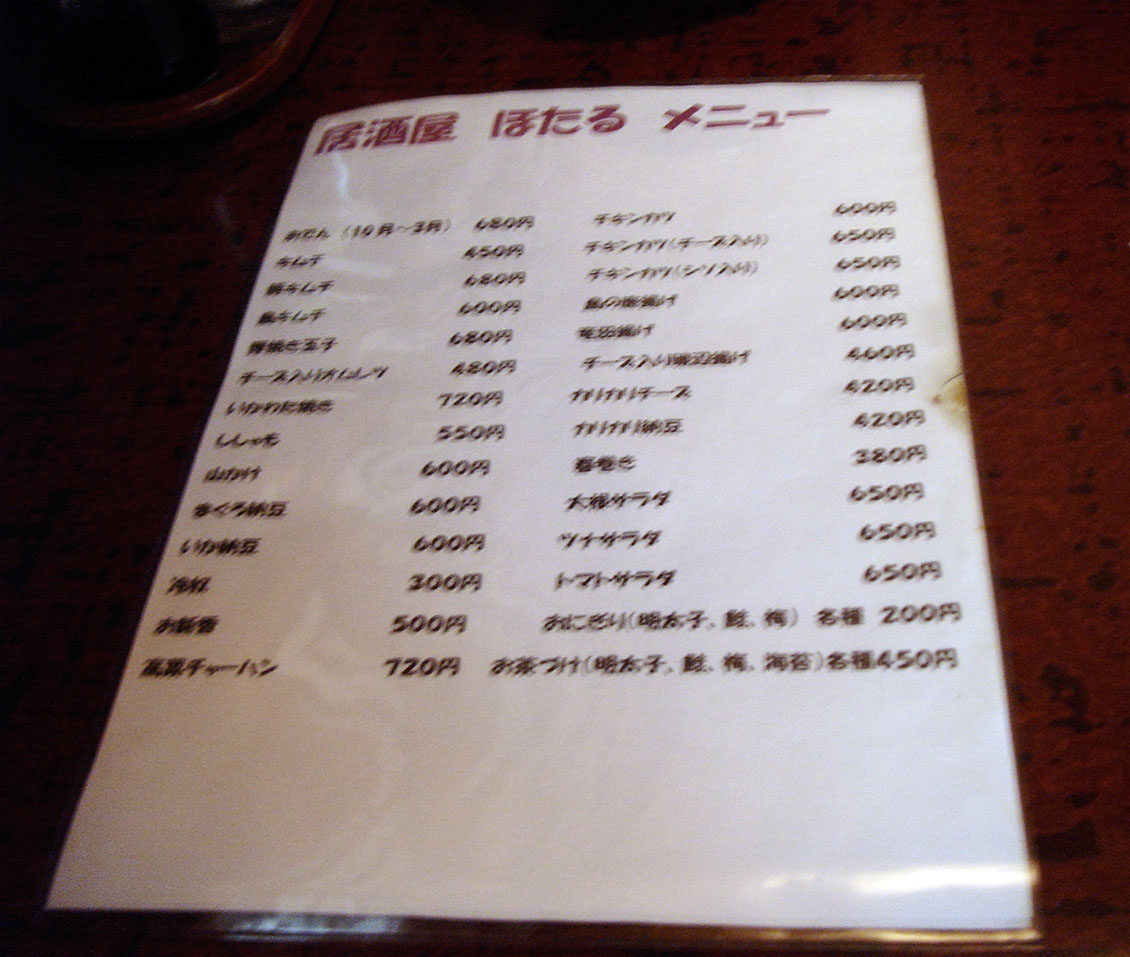 居酒屋 ほたる メニュー
おでん（10月～3月） 680円
キムチ 450円
豚キムチ 680円
烏キムチ 600円
豚焼き玉子 680円
チーズ入りオムレツ 480円
いかわた焼き 720円
ししゃも 550円
山かけ 600円
まぐろ納豆 600円
いか納豆 600円
冷奴 300円
お新香 500円
高菜チャーハン 720円
チキンカツ 600円
チキンカツ（チーズ入り） 650円
チキンカツ（シソ入り） 650円
鳥の唐揚げ 600円
竜田揚げ 600円
チーズ入り磯辺揚げ 460円
カリカリチーズ 420円
カリカリ納豆 420円
春巻き 380円
大根サラダ 650円
ツナサラダ 650円
トマトサラダ 650円
おにぎり（明太子、鮭、梅） 各種 200円
お茶づけ（明太子、鮭、梅、海苔）各種450円